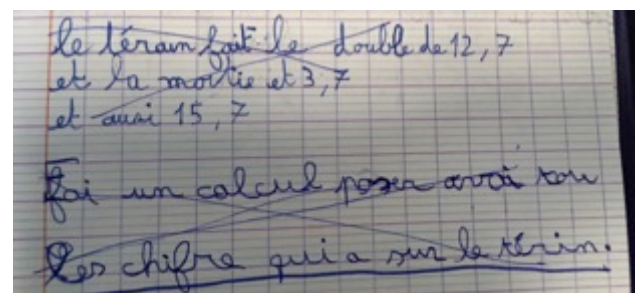 le térain fait le double de 12,7
et la moitie et 3,7
et ausi 15,7
Fai un calcul poser avoi tou
les chifre qui a sur le térin.